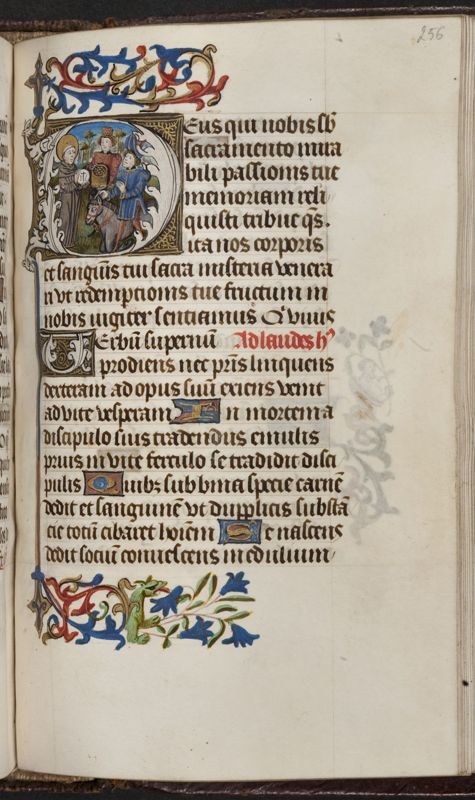 256
Deus qui nobis sb
sacramento mira
bili passionis tue
memoriam reli
quisti tribue qs.
ita nos corporis
et sanguis tui sacra misteria venera
ri vt redemptionis tue fructum in
nobis iugiter sentiamus Q viuis
Verbū supernū Ad laudes hꝰ
prodiens nec pris linquens
dexteram ad opus suū exiens venit
ad vite vesperam In mortem a
discipulo suis tradendus emulis
prius in vite ferculo se tradidit disci
pulis Quibꝫ sub bina specie carnē
dedit et sanguinem vt dupplicis substā
cie totū cibaret hoīem Se nascens
dedit sociū conuescens in edulium